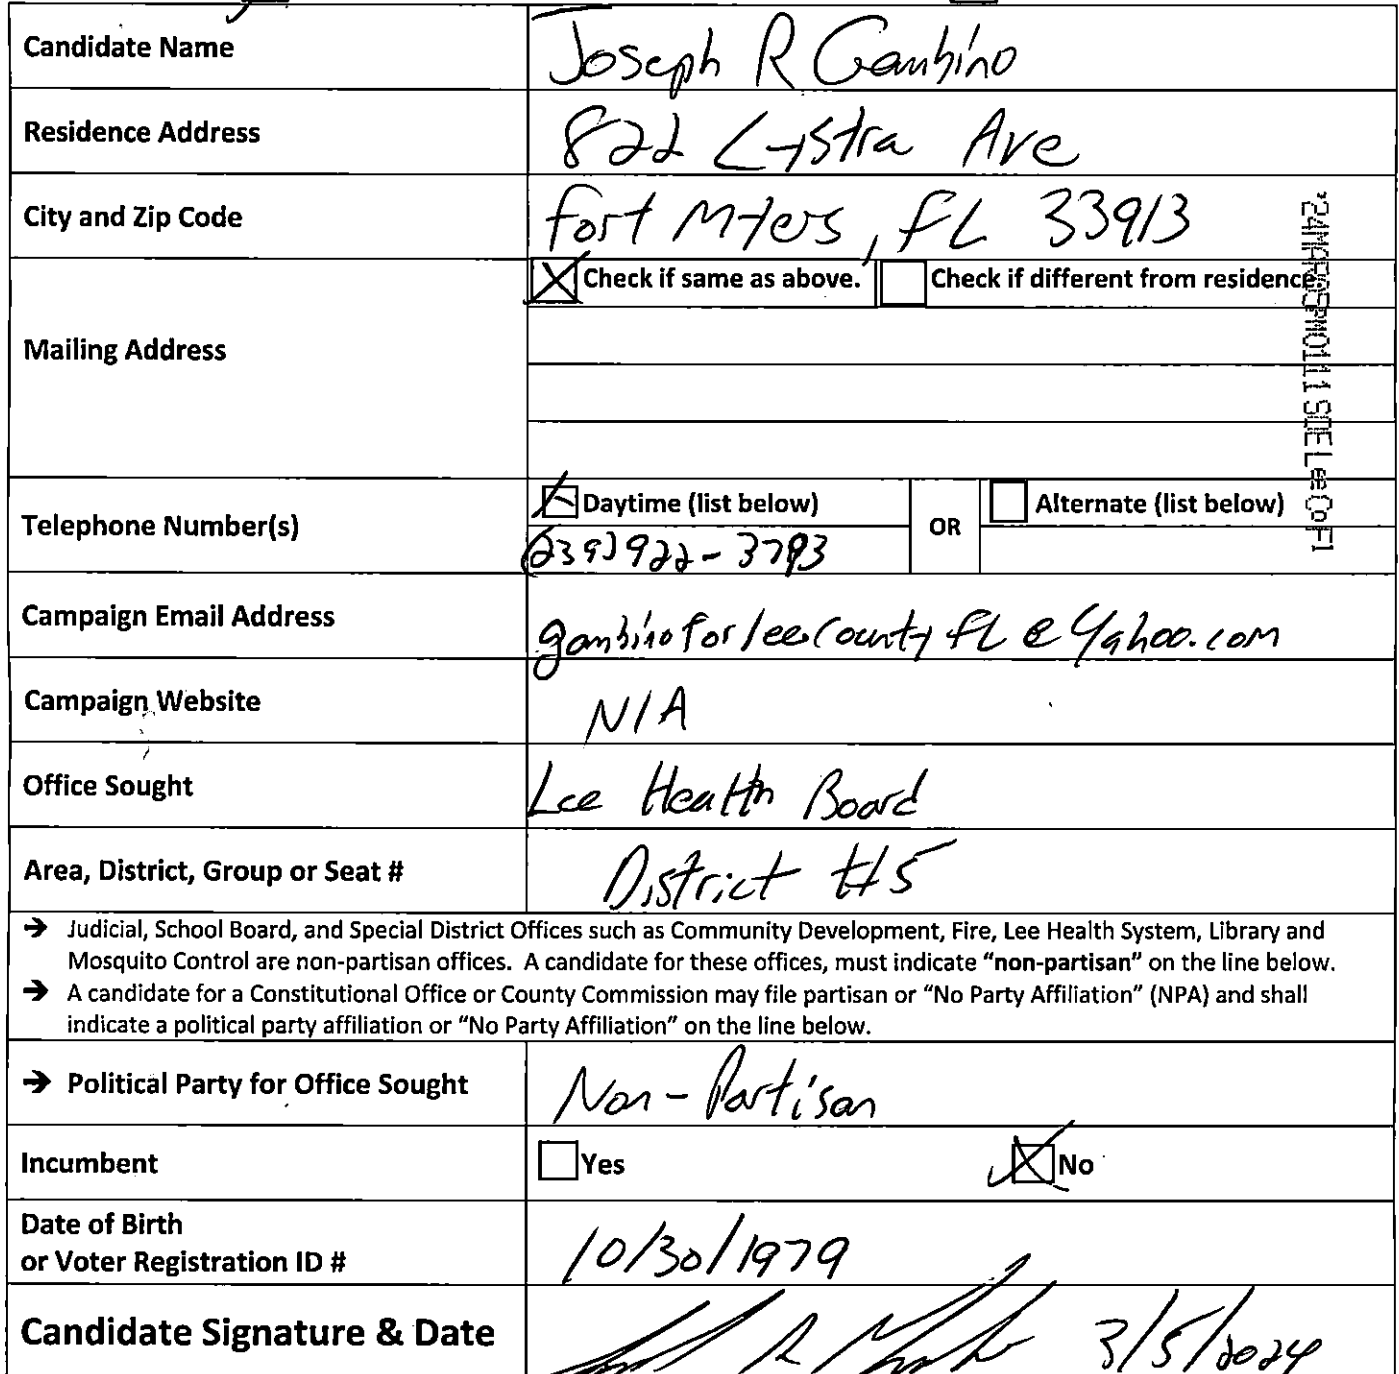 Candidate Name Joseph R Gambino
Residence Address 822 Lystra Ave
City and Zip Code Fort Myers, FL 33913
Check if same as above. Check if different from residence.
Mailing Address
'24MAR05PM0111 SOE Lee Co Fl
Daytime (list below) OR Alternate (list below)
Telephone Number(s)
(239)922-3793
Campaign Email Address gambinoforleecountyFL@Yahoo.com
Campaign Website N/A
Office Sought Lee Health Board
Area, District, Group or Seat # District #5
→ Judicial, School Board, and Special District Offices such as Community Development, Fire, Lee Health System, Library and
Mosquito Control are non-partisan offices. A candidate for these offices, must indicate "non-partisan" on the line below.
→ A candidate for a Constitutional Office or County Commission may file partisan or "No Party Affiliation" (NPA) and shall
indicate a political party affiliation or "No Party Affiliation" on the line below.
→ Political Party for Office Sought Non-Partisan
Incumbent Yes No
Date of Birth
or Voter Registration ID # 10/30/1979
Candidate Signature & Date 3/5/2024